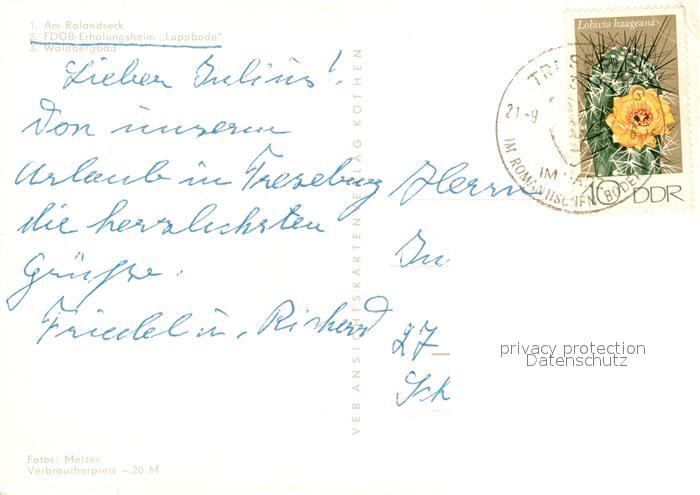 1. Am Rolandseck
2. FDGB-Erholungsheim „Luppbode"
3. Waldbergbad
Lieber Julius!
Von unserm
Urlaub in Treseburg
die herzlichsten
Grüße.
Friedel u. Richard
VEB ANSICHTSKARTENVERLAG KÖTHEN
Fotos: Melzer
Verbraucherpreis –.20 M
Lobivia haageana
10 DDR
21.-9
IM ROMANTISCHEN BODE
Herrn
Ju
27
Sch
privacy protection
Datenschutz